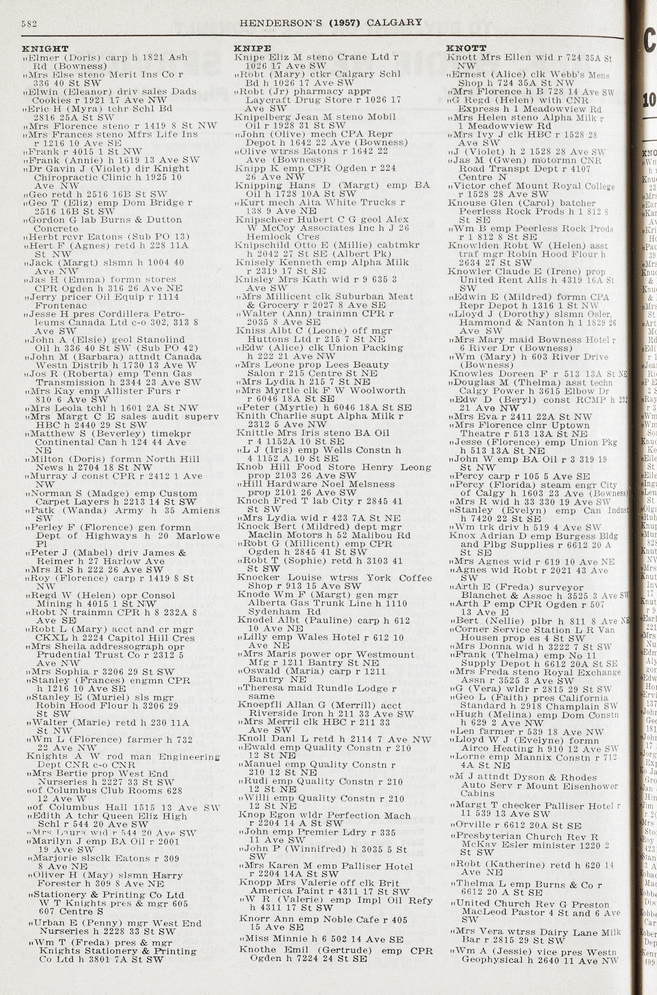 582
HENDERSON'S (1957) CALGARY
KNIGHT
„Elmer (Doris) carp h 1821 Ash
Rd (Bowness)
„Mrs Else steno Merit Ins Co r
336 40 St SW
„Elwin (Eleanor) driv sales Dads
Cookies r 1921 17 Ave NW
„Eric H (Myra) tchr Schl Bd
2816 25A St SW
„Mrs Florence steno r 1419 8 St NW
„Mrs Frances steno Mfrs Life Ins
r 1216 10 Ave SE
„Frank r 4015 1 St NW
„Frank (Annie) h 1619 13 Ave SW
„Dr Gavin J (Violet) dir Knight
Chiropractic Clinic h 1925 10
Ave NW
„Geo retd h 2516 16B St SW
„Geo T (Eliz) emp Dom Bridge r
2516 16B St SW
„Gordon G lab Burns & Dutton
Concrete
„Herbt rcvr Eatons (Sub PO 13)
„Hert F (Agnes) retd h 228 11A
St NW
„Jack (Margt) slsmn h 1004 40
Ave NW
„Jas H (Emma) formn stores
CPR Ogden h 316 26 Ave NE
„Jerry pricer Oil Equip r 1114
Frontenac
„Jesse H pres Cordillera Petro-
leums Canada Ltd c-o 302, 313 8
Ave SW
„John A (Elsie) geol Stanolind
Oil h 336 40 St SW (Sub PO 42)
„John M (Barbara) attndt Canada
Westn Distrib h 1730 13 Ave W
„Jos R (Roberta) emp Tem Gas
Transmission h 2344 23 Ave SW
„Mrs Kay emp Allister Furs r
810 6 Ave SW
„Mrs Leola tchl h 1601 2A St NW
„Mrs Margt C ES sales audit superv
HBC h 2440 29 St SW
„Matthew S (Beverley) timekpr
Continental Can h 124 44 Ave
NE
„Milton (Doris) formn North Hill
News h 2704 18 St NW
„Murray J const CPR r 2412 1 Ave
NW
„Norman S (Madge) emp Custom
Carpet Layers h 2213 14 St SW
„Patk (Wanda) Army h 35 Amiens
SW
„Perley F (Florence) gen formn
Dept of Highways h 20 Marlowe
Pl
„Peter J (Mabel) driv James &
Reimer h 27 Harlow Ave
„Mrs R S h 222 26 Ave SW
„Roy (Florence) carp r 1419 8 St
NW
„Regd W (Helen) opr Consol
Mining h 4015 1 St NW
„Robt N trainmn CPR h 8 232A 8
Ave SE
„Robt L (Mary) acct and cr mgr
CKXL h 2224 Capitol Hill Cres
„Mrs Sheila addressograph opr
Prudential Trust Co r 2312 5
Ave NW
„Mrs Sophia r 3206 29 St SW
„Stanley (Frances) engmn CPR
h 1216 10 Ave SE
„Stanley E (Muriel) sls mgr
Robin Hood Flour h 3206 29
St SW
„Walter (Marie) retd h 230 11A
St NW
„Wm L (Florence) farmer h 732
22 Ave NW
Knights A W rod man Engineering
Dept CNR c-o CNR
„Mrs Bertie prop West End
Nurseries h 2227 33 St SW
„of Columbus Club Rooms 628
12 Ave W
„of Columbus Hall 1515 13 Ave SW
„Edith A tchr Queen Eliz High
Schl r 544 20 Ave SW
„Mrs Laura wid r 544 20 Ave SW
„Marilyn J emp BA Oil r 2001
19 Ave SW
„Marjorie slsclk Eatons r 309
8 Ave NE
„Oliver H (May) slsmn Harry
Forester h 309 8 Ave NE
„Stationery & Printing Co Ltd
W T Knights pres & mgr 605
607 Centre S
„Urban E (Penny) mgr West End
Nurseries h 2228 33 St SW
„Wm T (Freda) pres & mgr
Knights Stationery & Printing
Co Ltd h 3801 7A St SW
KNIPE
Knipe Eliz M steno Crane Ltd r
1026 17 Ave SW
„Robt (Mary) ctkr Calgary Schl
Bd h 1026 17 Ave SW
„Robt (Jr) pharmacy appr
Laycraft Drug Store r 1026 17
Ave SW
Knipelberg Jean M steno Mobil
Oil r 1928 31 St SW
„John (Olive) mech CPA Repr
Depot h 1642 22 Ave (Bowness)
„Olive wtrss Eatons r 1642 22
Ave (Bowness)
Knipp K emp CPR Ogden r 224
26 Ave NW
Knipping Hans D (Margt) emp BA
Oil h 1728 10A St SW
„Kurt mech Alta White Trucks r
138 9 Ave NE
Knipscheer Hubert C G geol Alex
W McCoy Associates Inc h J 26
Hemlock Cres
Knipschild Otto E (Millie) cabtmkr
h 2042 27 St SW (Albert Pk)
Knisely Kenneth emp Alpha Milk
r 2319 17 St SW
Knisley Mrs Kath wid r 9 635 3
Ave SW
„Mrs Millicent clk Suburban Meat
& Grocery r 2027 8 Ave SE
„Walter (Ann) trainmn CPR r
2035 8 Ave SE
Kniss Albt C (Leone) off mgr
Huttons Ltd r 215 7 St NE
„Edw (Alice) clk Union Packing
h 222 21 Ave NW
„Mrs Leone prop Lees Beauty
Salon r 215 Centre St NE
„Mrs Lydia h 215 7 St NE
„Mrs Myrtle clk F W Woolworth
r 6046 18A St SE
„Peter (Myrtle) h 6046 18A St SE
Knith Charlie supt Alpha Milk r
2312 5 Ave NW
Knittle Mrs Iris steno BA Oil
r 4 1152A 10 St SE
„L J (Iris) emp Wells Constn h
4 1152 A 10 St SE
Knob Hill Food Store Henry Leong
prop 2103 26 Ave SW
„Hill Hardware Noel Melsness
prop 2101 26 Ave SW
Knoch Fred T lab City r 2845 41
St SW
„Mrs Lydia wid r 423 7A St NE
Knock Bert (Mildred) dept mgr
Maclin Motors h 52 Malibou Rd
„Robt G (Millicent) emp CPR
Ogden h 2845 41 St SW
„Robt T (Sophie) retd h 3103 41
St SW
Knocker Louise wtrss York Coffee
Shop r 913 15 Ave SW
Knode Wm F (Margt) gen mgr
Alberta Gas Trunk Line h 1110
Sydenham Rd
Knodel Albt (Pauline) carp h 612
10 Ave NE
„Lilly emp Wales Hotel r 612 10
Ave NE
„Mrs Maris power opr Westmount
Mfg r 1211 Bantry St NE
„Oswald (Maria) carp r 1211
Bantry NE
„Theresa maid Rundle Lodge r
same
Knoepfli Allan G (Merrill) acct
Riverside Iron h 211 33 Ave SW
„Mrs Merril clk HBC r 211 33
Ave SW
Knoll Danl L retd h 2114 7 Ave NW
„Ewald emp Quality Constn r 210
12 St NE
„Manuel emp Quality Constn r
210 12 St NE
„Rudi emp Quality Constn r 210
12 St NE
„Willi emp Quality Constn r 210
12 St NE
Knop Egon wldr Perfection Mach
r 2204 14 A St SW
„John emp Premier Ldry r 335
11 Ave SW
„John P (Winnifred) h 3035 5 St
SW
„Mrs Karen M emp Palliser Hotel
r 2204 14A St SW
Knopp Mrs Valerie off clk Brit
America Paint r 4311 17 St SW
„W R (Valerie) emp Impl Oil Refy
h 4311 17 St SW
Knorr Ann emp Noble Cafe r 405
15 Ave SW
„Miss Minnie h 6 502 14 Ave SW
Knothe Emil (Gertrude) emp CPR
Ogden h 7224 24 St SE
KNOTT
Knott Mrs Ellen wid r 724 35A St
NW
„Ernest (Alice) clk Webb's Mens
Shop h 724 35A St NW
„Mrs Florence h B 728 14 Ave SW
„G Regd (Helen) with CNR
Express h 1 Meadowview Rd
„Mrs Helen steno Alpha Milk r
1 Meadowview Rd
„Mrs Ivy J clk HBC r 1528 28
Ave SW
„J (Violet) h 2 1528 28 Ave SW
„Jas M (Gwen) motormn CNR
Road Transpt Dept r 4107
Centre N
„Victor chef Mount Royal College
r 1528 28 Ave SW
Knouse Glen (Carol) batcher
Peerless Rock Prods h 1 812 8
St SE
„Wm B emp Peerless Rock Prods
r 1 812 8 St SE
Knowlden Robt W (Helen) asst
traf mgr Robin Hood Flour h
2634 27 St SW
Knowler Claude E (Irene) prop
United Rent Alls h 4319 16A St
SW
„Edwin E (Mildred) formn CPA
Repr Depot h 1316 1 St NW
„Lloyd J (Dorothy) slsmn Osler,
Hammond & Nanton h 1 1829 26
Ave SW
„Mrs Mary maid Bowness Hotel r
6 River Dr (Bowness)
„Wm (Mary) h 603 River Drive
(Bowness)
Knowles Doreen F r 513 13A St NE
„Douglas M (Thelma) asst techn
Calgy Power h 3615 Elbow Dr
„Edw D (Beryl) const RCMP h
21 Ave NW
„Mrs Eva r 2411 22A St NW
„Mrs Florence clnr Uptown
Theatre r 513 13A St NE
„Jesse (Florence) emp Union Pkg
h 513 13A St NE
„John W emp BA Oil r 3 319 19
St NW
„Percy carp r 105 5 Ave SE
„Percy (Florida) steam engr City
of Calgy h 1603 23 Ave (Bowness)
„Mrs R wid h 33 330 19 Ave SW
„Stanley (Evelyn) emp Can Indus
h 7420 22 St SE
„Wm trk driv h 519 4 Ave SW
Knox Adrian D emp Burgess Bldg
and Plbg Supplies r 6612 20 A
St SE
„Mrs Agnes wid r 619 10 Ave NE
„Agnes wid Robt r 2021 43 Ave
SW
„Arth E (Freda) surveyor
Blanchet & Assoc h 3525 3 Ave SW
„Arth P emp CPR Ogden r 507
13 Ave E
„Bert (Nellie) plbr h 811 8 Ave NE
„Corner Service Station L R Van
Housen prop es 4 St SW
„Mrs Donna wid h 3222 7 St SW
„Frank (Thelma) emp No 11
Supply Depot h 6612 20A St SE
„Mrs Freda steno Royal Exchange
Assn r 3525 3 Ave SW
„G (Vera) wldr r 2815 29 St SW
„Geo L (Faith) pres California
Standard h 2918 Champlain SW
„Hugh (Melina) emp Dom Constn
h 629 2 Ave NW
„Len farmer r 539 18 Ave NW
„Lloyd W J (Evelyne) formn
Airco Heating h 910 12 Ave SW
„Lorne emp Mannix Constn r 712
4A St NE
„M J attndt Dyson & Rhodes
Auto Serv r Mount Eisenhower
Cabins
„Margt T checker Palliser Hotel r
11 539 13 Ave SW
„Orville r 6612 20A St SE
„Presbyterian Church Rev R
McKay Esler minister 1220 2
St SW
„Robt (Katherine) retd h 620 14
Ave NE
„Thelma L emp Burns & Co r
6612 20 A St SE
„United Church Rev G Preston
MacLeod Pastor 4 St and 6 Ave
SW
„Mrs Vera wtrss Dairy Lane Milk
Bar r 2815 29 St SW
„Wm A (Jessie) vice pres Westn
Geophysical h 2640 11 Ave NW